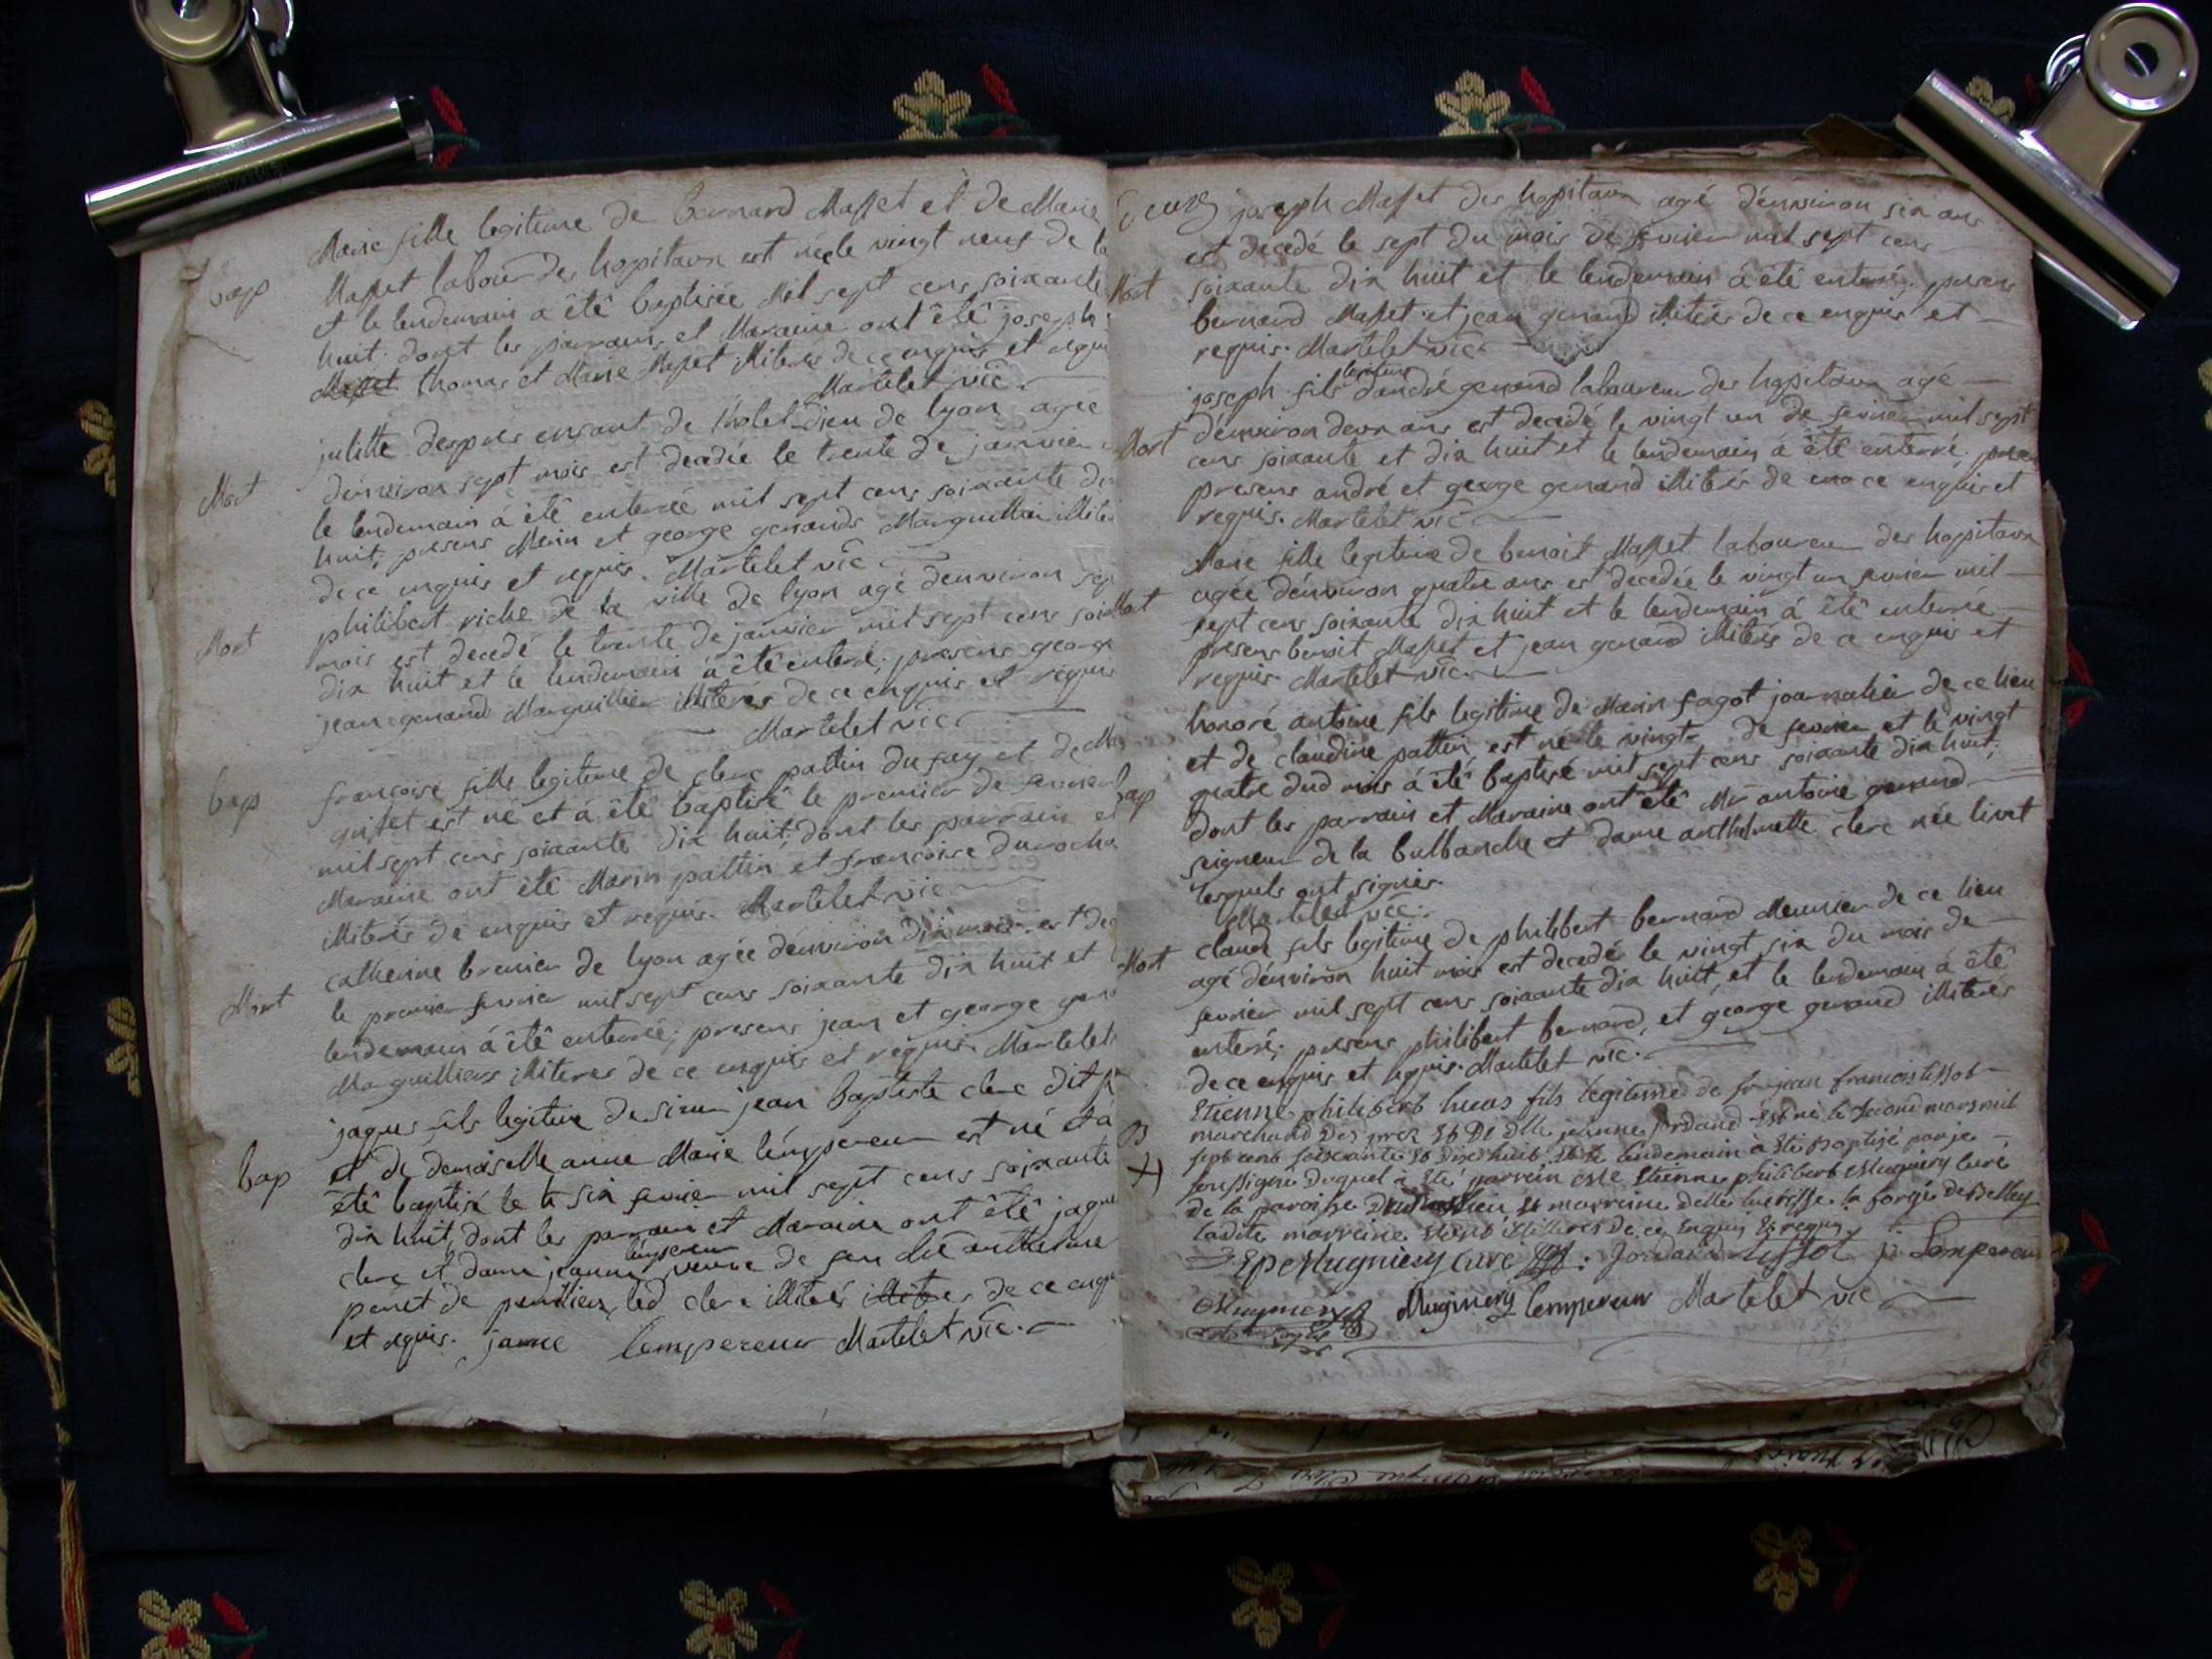 bap
Marie fille legitime de bernard Masset et de Marie
Masset labour des hopitaux est née le vingt neuf de
et le lendemain a été baptisée mil sept cens soixante
huit. dont les parrain, et Maraine ont été joseph
Masset thomas et Marie Masset illiteres de ce enquis et requi
Martelet vic.
Mort
julitte despres enfant de l'hotel-dieu de lyon agée
d'environ sept mois est decedée le trente de janvier
le lendemain à été enterrée mil sept cens soixante dix
huit; presens Marin et george genands Marguillier illite
de ce enquis et requis. Martelet vic
Mort
philibert riche de la ville de lyon agé denviron sept
mois est decedé le trente de janvier mil sept cens soix
dix huit et le lendemain à été enterré; presens george
jean genand Marguillier illiterés de ce enquis et requis
Martelet vic
bap
francoise fille legitime de clerc pattin du fay et de Ma
guifet est né et à été baptisé le premier de fevrier
mil sept cens soixante dix huit; dont les parrain et
Maraine ont été Marin pattin et francoise durocha
illiterés de enquis et requis. Martelet vic
Mort
catherine brenier de lyon agée d'environ dix mois est de
le premier fevrier mil sept cens soixante dix huit et
lendemain à été enterrée; presens jean et george gen
Marguilliers illiteres de ce enquis et requis. Martelet
bap
jaques fils legitime de sieur jean baptiste clerc dit
et de demoiselle anne Marie lempereur est né et à
été baptisé le six fevrier mil sept cens soixante
dix huit, dont les parrain et Maraine ont été jaque
clerc et dame jeanne lempereur veuve de feu
penet de led clerc illiteré illiteres de ce enqu
et requis. janne Lempereur Martelet vic.
deux
Mort
joseph Masset des hopitaux agé d'environ six ans
est decedé le sept du mois de fevrier mil sept cens
soixante dix huit et le lendemain à été enterré; presens
bernard Masset et jean genand illiterés de ce enquis et
requis. Martelet vic.
Mort
joseph fils legitime d'andré genand laboureur des hopitaux agé
d'environ deux ans est decedé le vingt un de fevrier mil sept
cens soixante et dix huit et le lendemain à été enterré.
presens andré et george genand illiterés de ce enquis et
requis. Martelet vic
Mort
Marie fille legitime de benoit Masset laboureur des hopitaux
agée d'environ quatre ans est decedée le vingt un fevrier mil
sept cens soixante dix huit et le lendemain à été enterrée
presens benoit Masset et jean genand illiterés de ce enquis et
requis. Martelet vic.
bap
honoré antoine fils legitime de Marin fagot journalier de ce lieu
et de claudine pattin est né le vingt de fevrier et le vingt
quatre dud mois à été baptisé mil sept cens soixante dix huit;
dont les parrain et Maraine ont été Mr antoine genand
seigneur de la bulbanche et dame anthelmette clerc née livet
lesquels ont signés.
Martelet vic.
Mort
claude fils legitime de philibert bernard Meunier de ce lieu
agé d'environ huit mois est decedé le vingt six du mois de
fevrier mil sept cens soixante dix huit, et le lendemain à été
enterré; presens philibert bernard, et george genand illiterés
de ce enquis et requis. Martelet vic.
B
Etienne philibert fils legitime de jean francois tissot
marchand des prez et de dlle jeanne jordand est né le second mars mil
sept cent soixante et dix huit et le lendemain à été baptisé par je
soussigné duquel à été parrain Etienne philibert Mugniery curé
de la paroisse et marreine delle la forge de Belley
ladite marreine illiterés de ce enquis et requis.
EpeMugniery curé Jordand tissot j. Lempereur
Mugniery Mugniery Lempereur Martelet vic